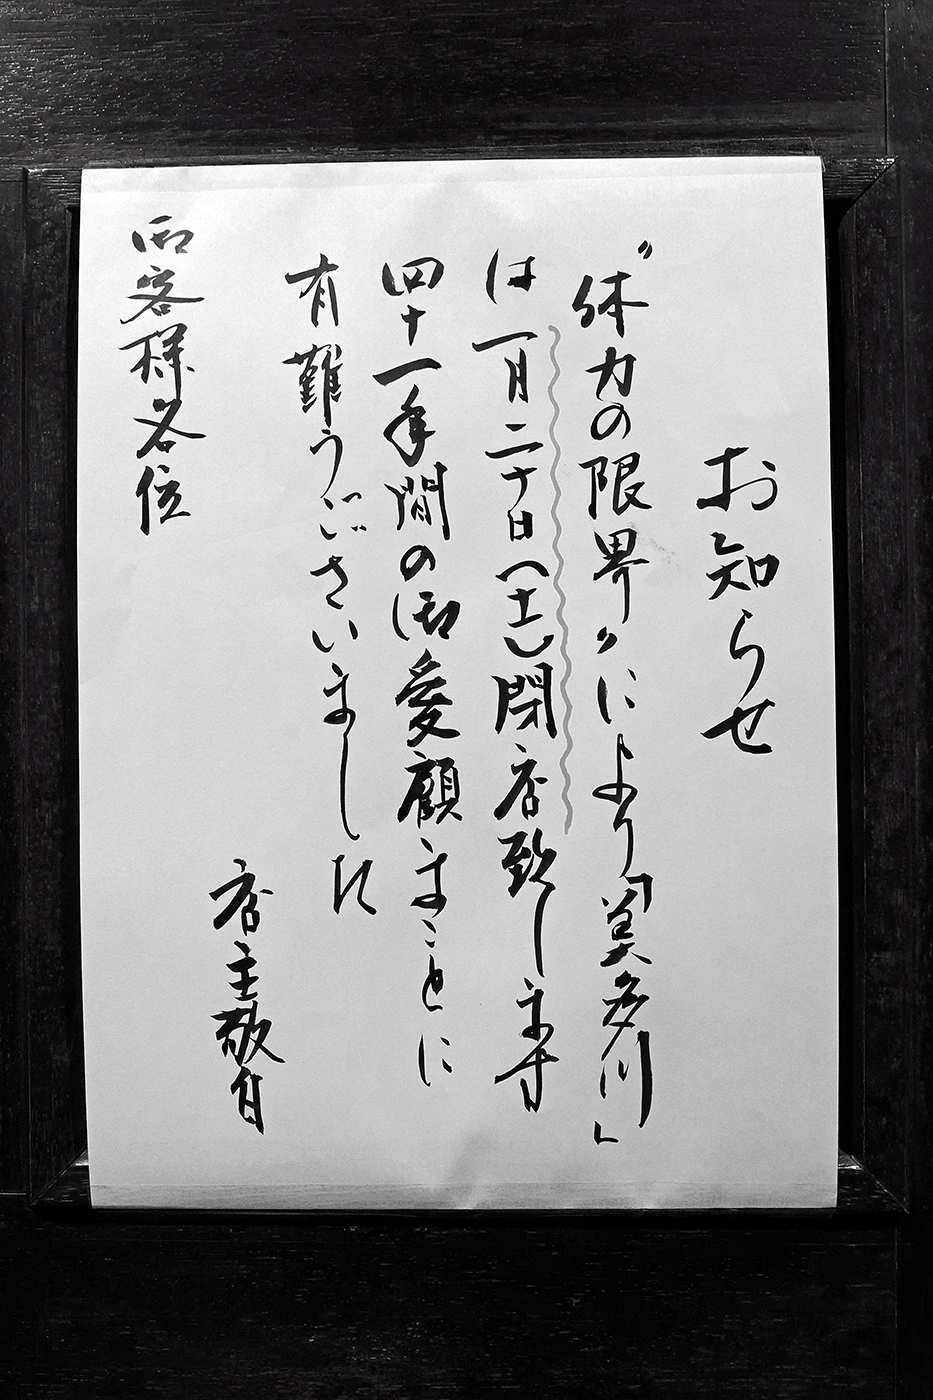 お知らせ
〝体力の限界〟により「美多川」
は一月二十日(土)閉店致します
四十一年間の御愛顧まことに
有難うございました
店主敬白
御客様各位